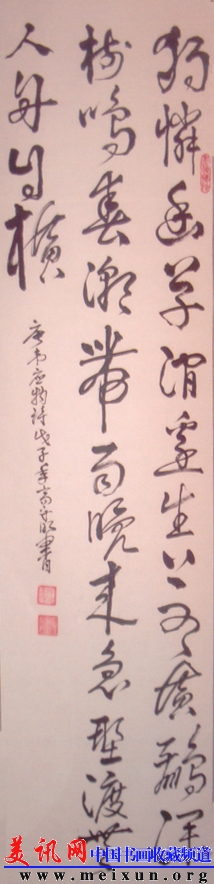 独憐幽草涧邊生上有黄鹂深
树鸣春潮带雨晚来急野渡無
人舟自横
唐韦应物诗戊子年高書
美讯网 中国书画收藏频道
www.meixun.org